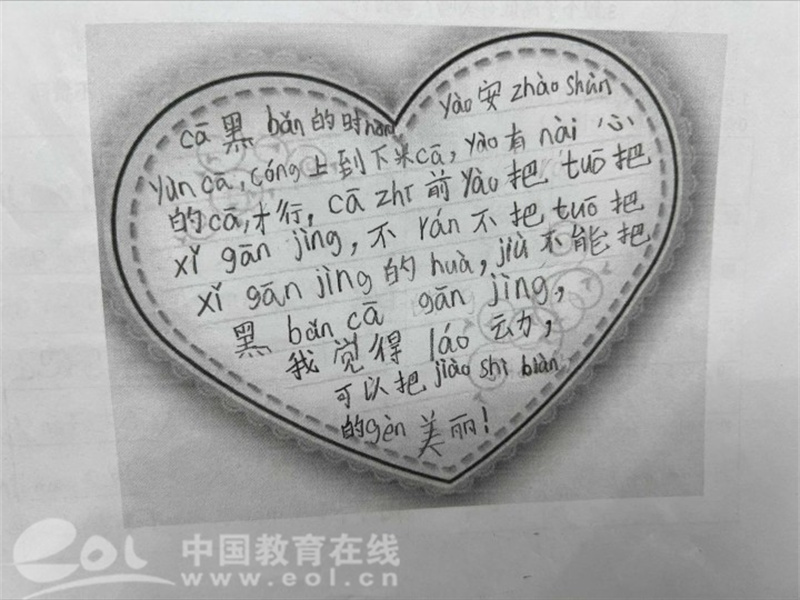 cā 黑 bǎn 的时hou
yào 安 zhào shùn
yùn cā, cóng 上到下来cā, yào 有 nài 心
的cā,才行, cā zhī 前 yào 把 tuō 把
xǐ gān jìng, 不 rán 不把 tuō 把
xǐ gān jìng 的 huà, jiù 不能把
黑 bǎn cā gān jìng,
我觉得 láo 动,
可以把 jiào shì biàn
的 gèn 美丽!
eol 中国教育在线
www.eol.cn